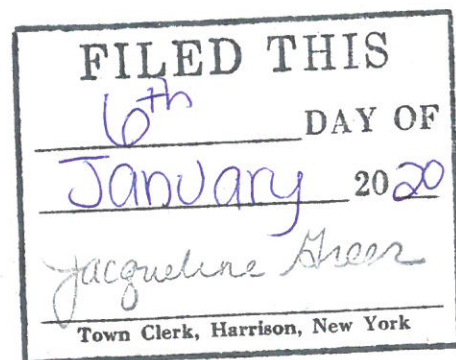 FILED THIS
6th DAY OF
January 2020
Jacqueline Greer
Town Clerk, Harrison, New York